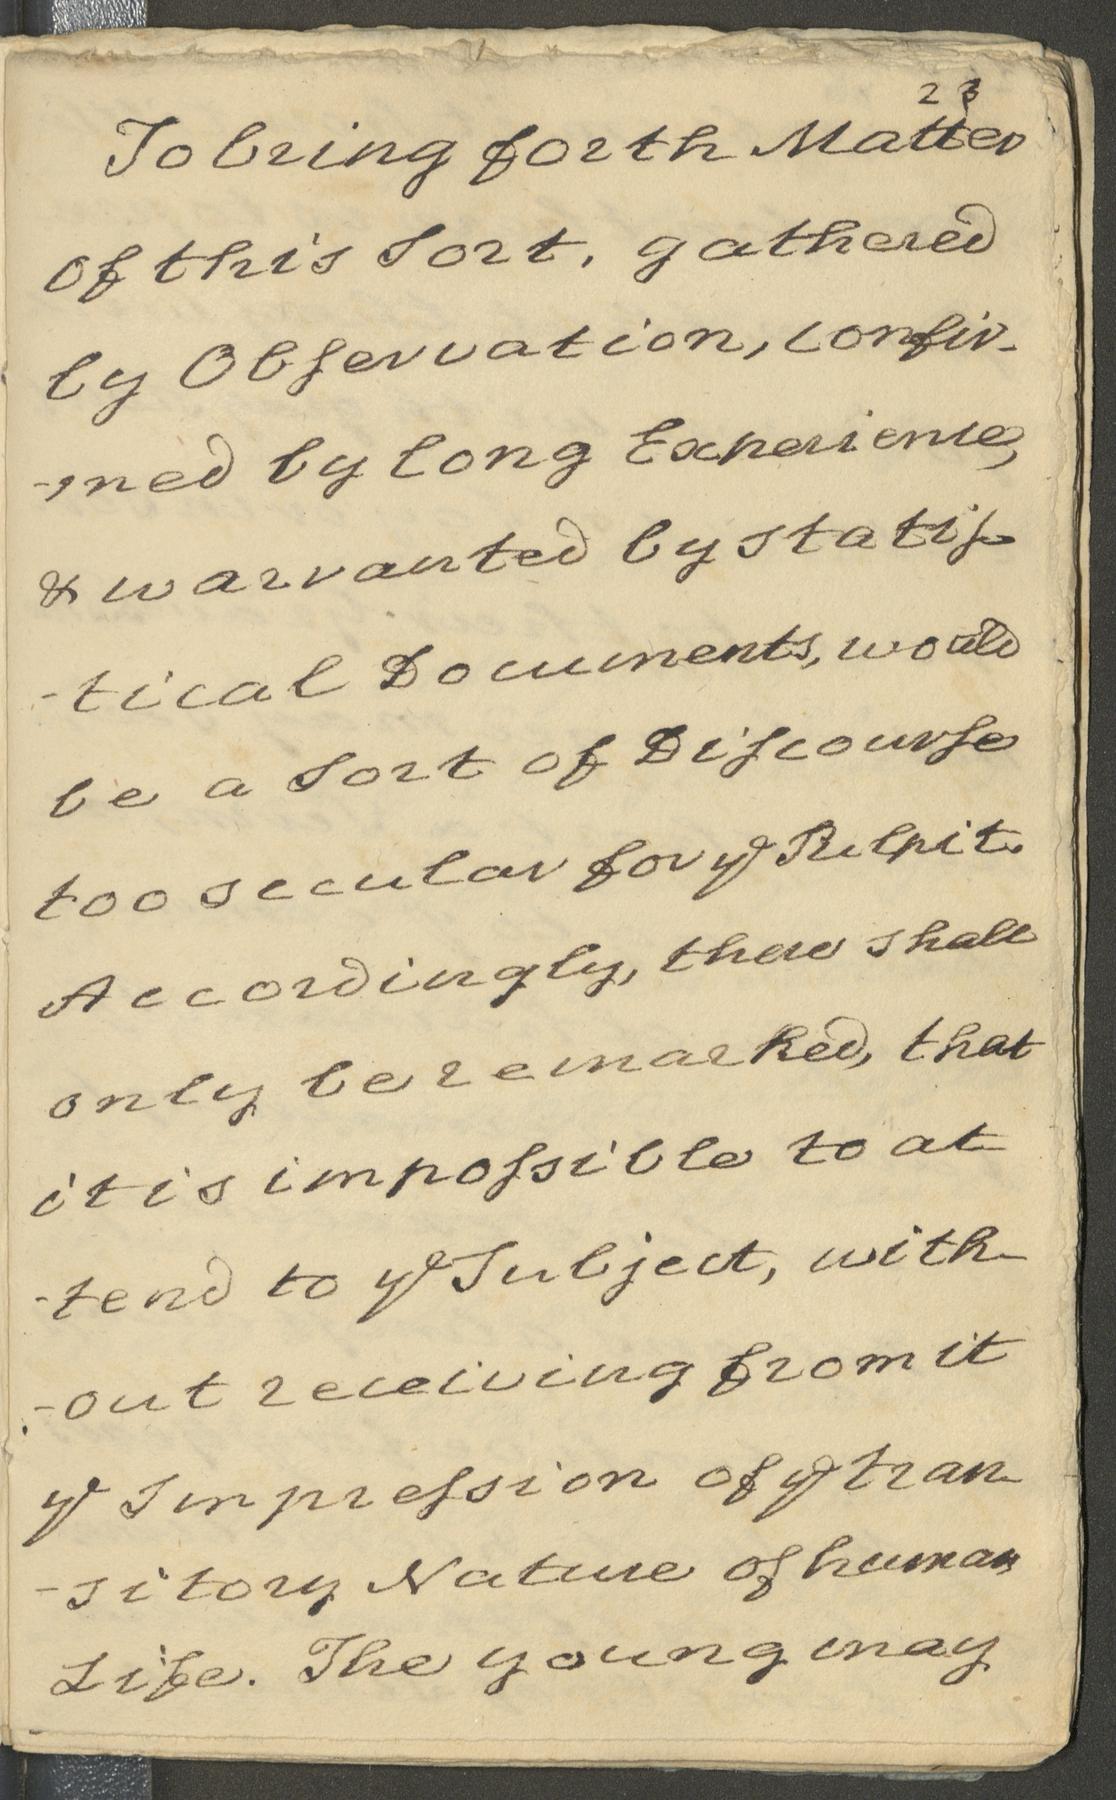 23
To bring forth Matter
of this Sort, gathered
by Obſervation, confir-
-med by long Experience,
& warranted by statiſ-
-tical Documents, would
be a Sort of Diſcourſe
too secular for yᵉ Pulpit.
Accordingly, there shall
only be remarked, that
it is impoſsible to at
-tend to yᵉ Subject, with
-out receiving from it
yᵉ Impreſsion of yᵉ tran
-sitory Nature of human
Life. The young may